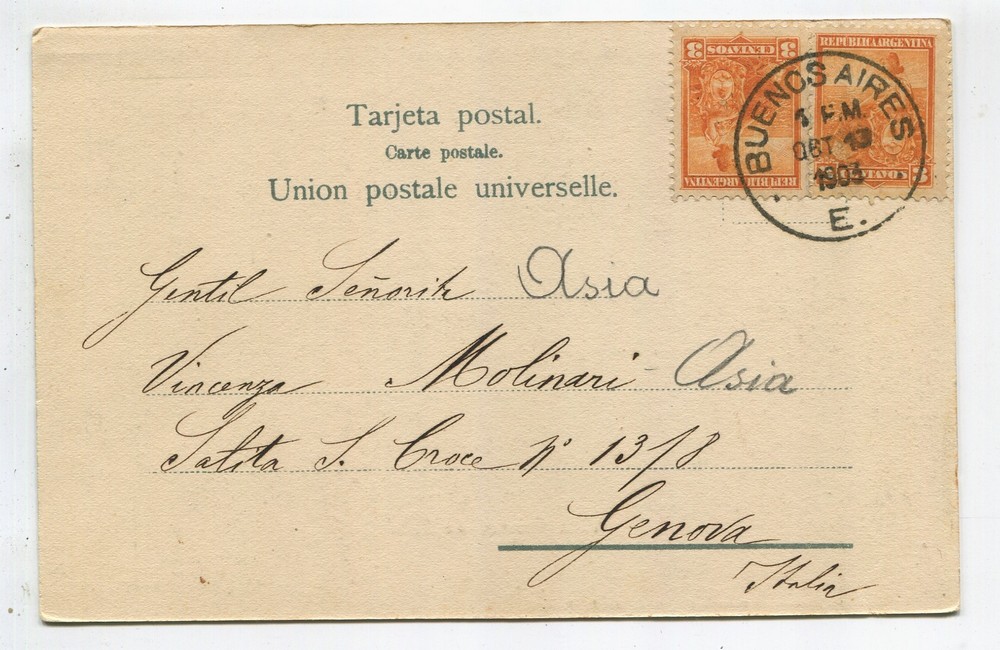 Tarjeta postal.
Carte postale.
Union postale universelle.
3 CENTAVOS 3
REPUBLICA ARGENTINA
REPUBLICA ARGENTINA
CENTAVOS 3
BUENOS AIRES
P.M.
OCT 13
1903
E.
Gentil Señorita Asia
Vincenza Molinari - Asia
Salita S. Croce Nº 13/8
Genova
Italia